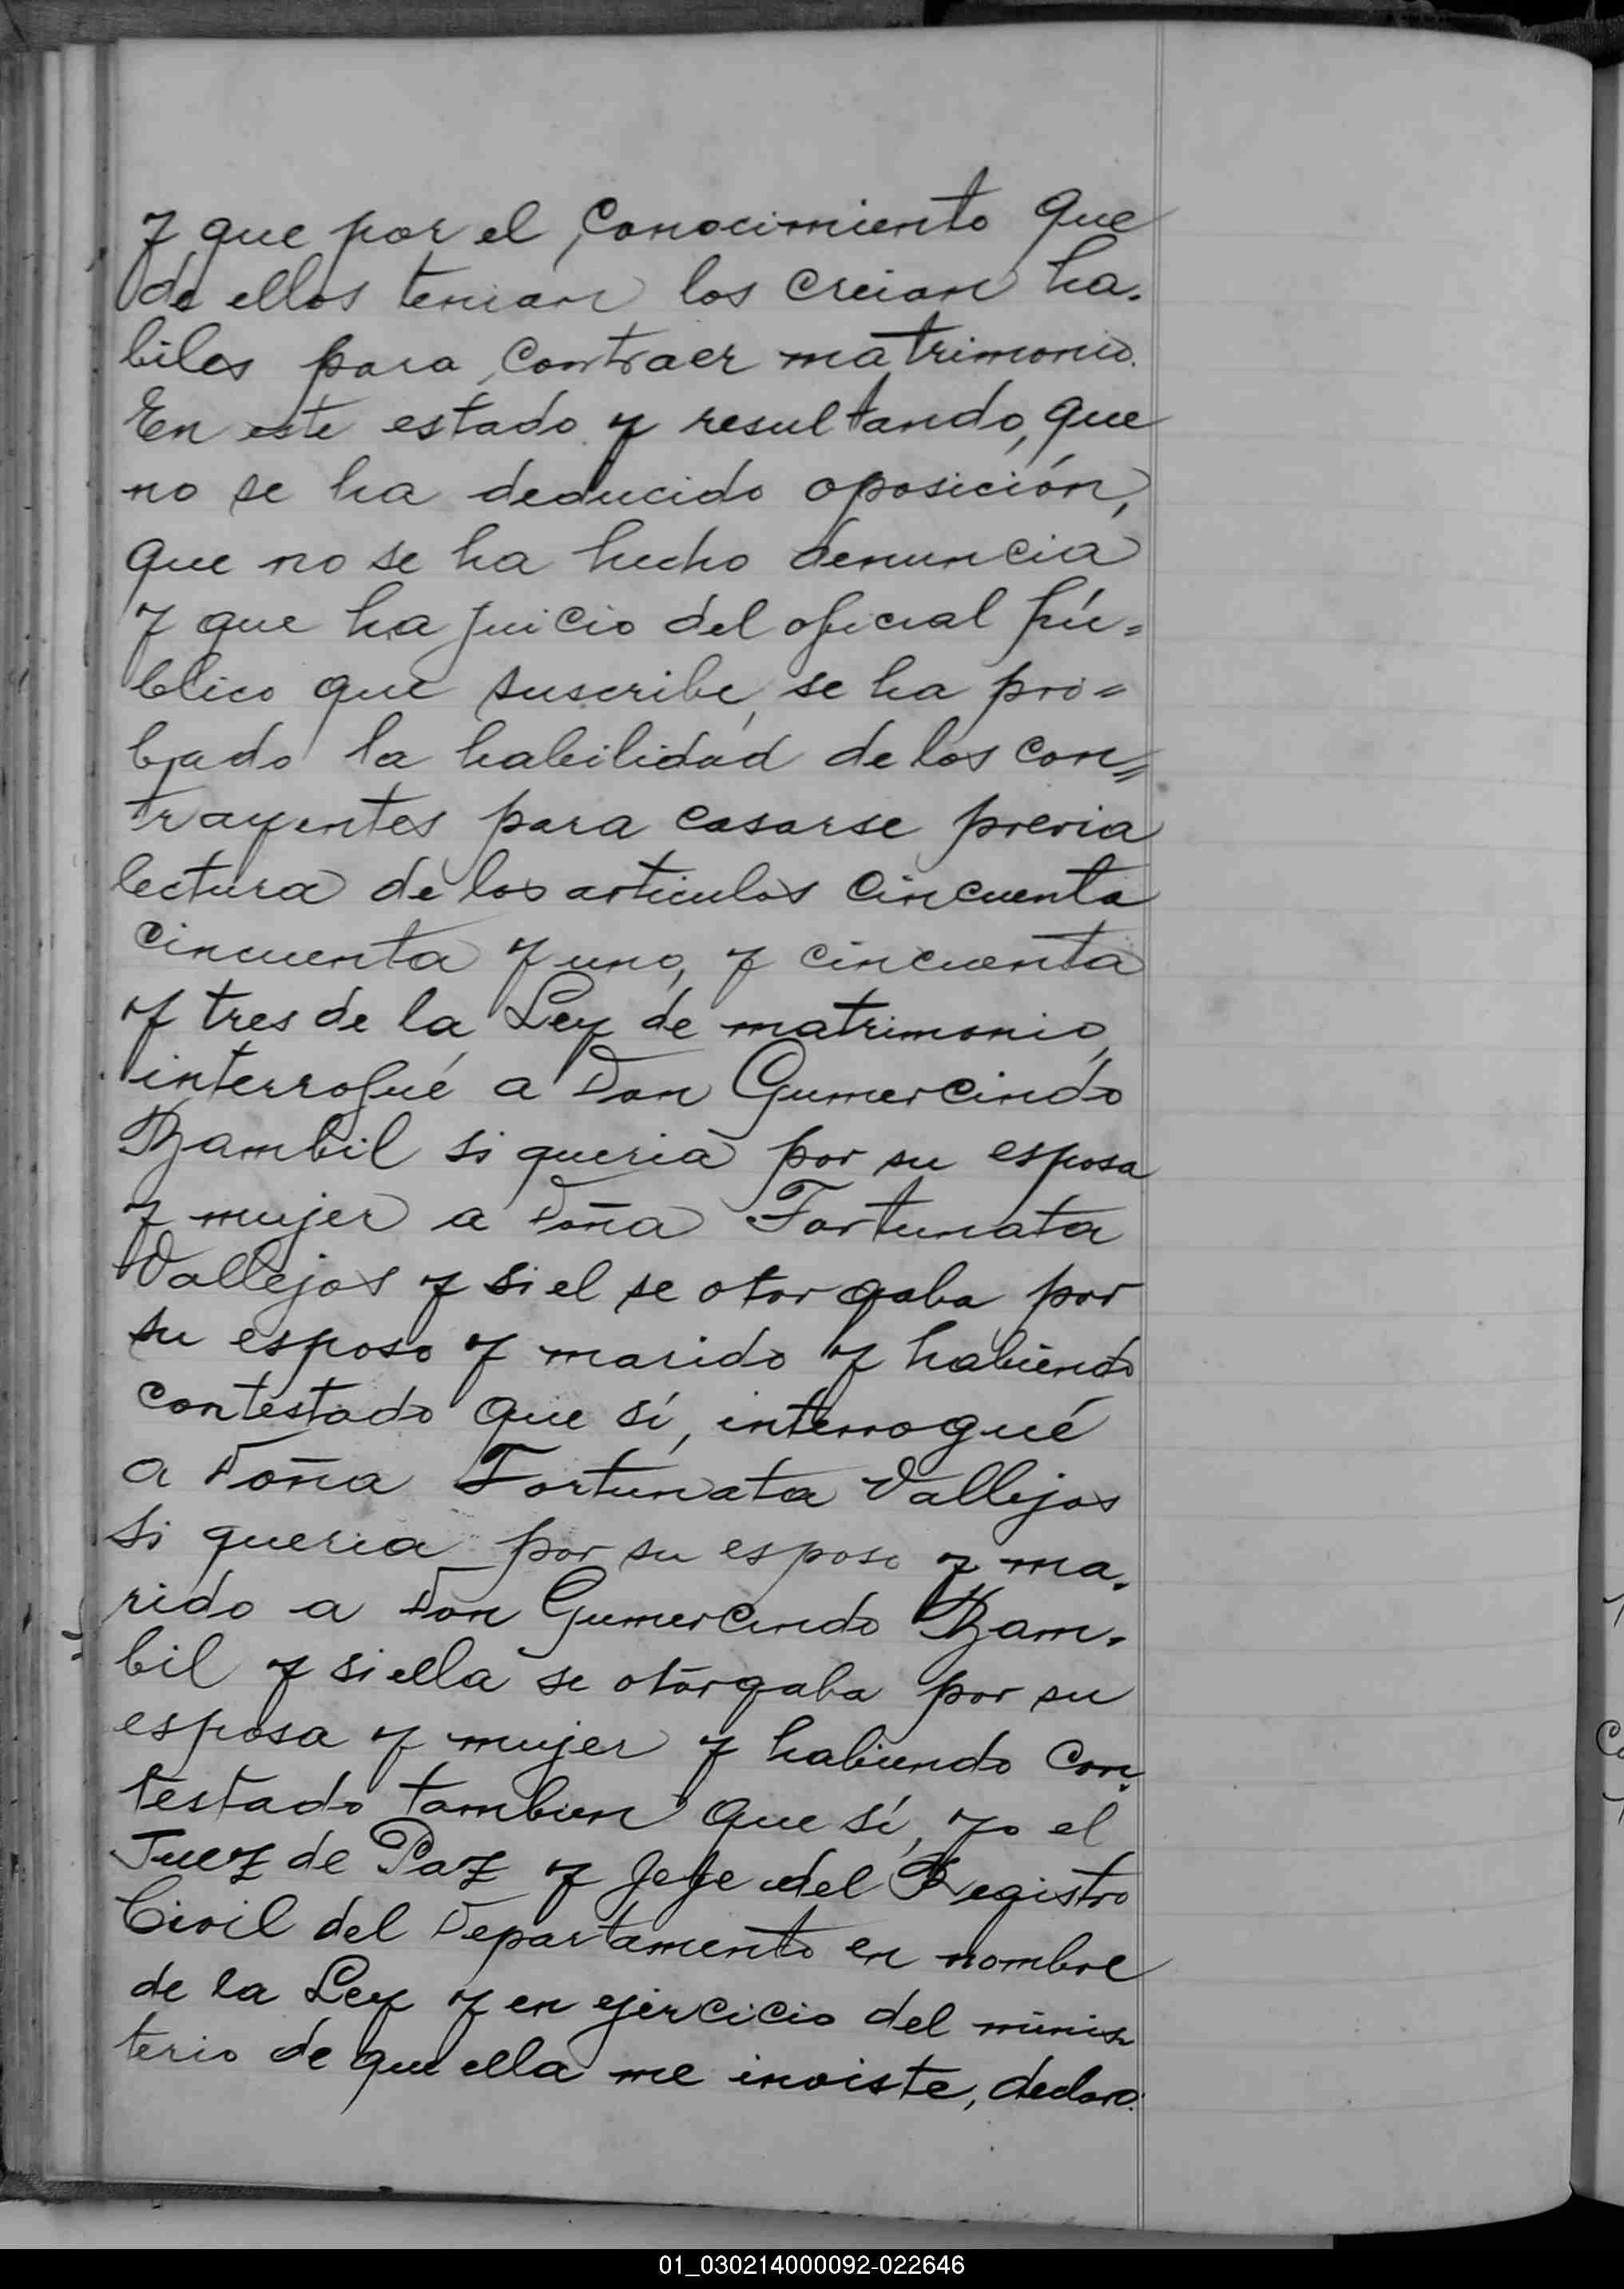 y que por el conocimiento que
de ellos tenian los creian ha-
biles para contraer matrimonio.
En este estado y resultando, que
no se ha deducido oposición,
que no se ha hecho denuncia
y que ha juicio del oficial pú=
blico que suscribe, se ha pro=
bado la habilidad de los con=
trayentes para casarse previa
lectura de los articulos cincuenta
cincuenta y uno, y cincuenta
y tres de la Ley de matrimonio,
interrogué a Don Gumercindo
Bambil si queria por su esposa
y mujer a Doña Fortunata
Vallejos y si el se otorgaba por
su esposo y marido y habiendo
contestado que sí, interrogué
a Doña Fortunata Vallejos
si queria por su esposo y ma-
rido a Don Gumercindo Bam-
bil y si ella se otorgaba por su
esposa y mujer y habiendo con-
testado tambien que sí, yo el
Juez de Paz y Jefe del Registro
Civil del Departamento en nombre
de la Ley y en ejercicio del minis-
terio de que ella me inviste, declaro:
01_030214000092-022646